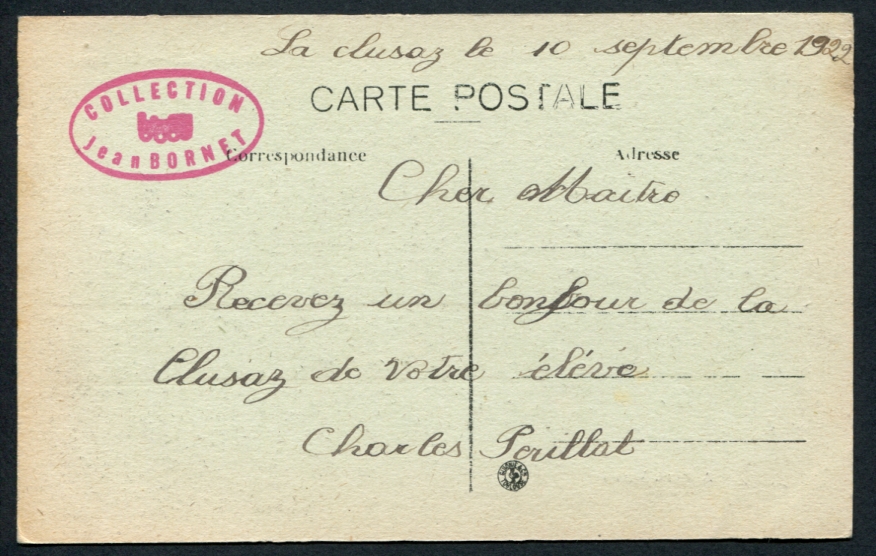 La clusaz le 10 septembre 1922
CARTE POSTALE
COLLECTION
Jean BORNET
Correspondance
Adresse
Cher Maitre
Recevez un bonjour de la
Clusaz de votre éléve
Charles Perillat